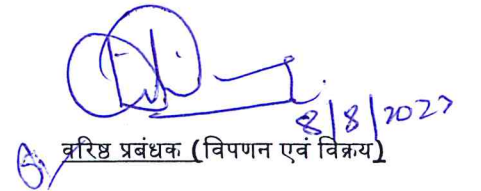 8/8/2023
वरिष्ठ प्रबंधक (विपणन एवं विक्रय)